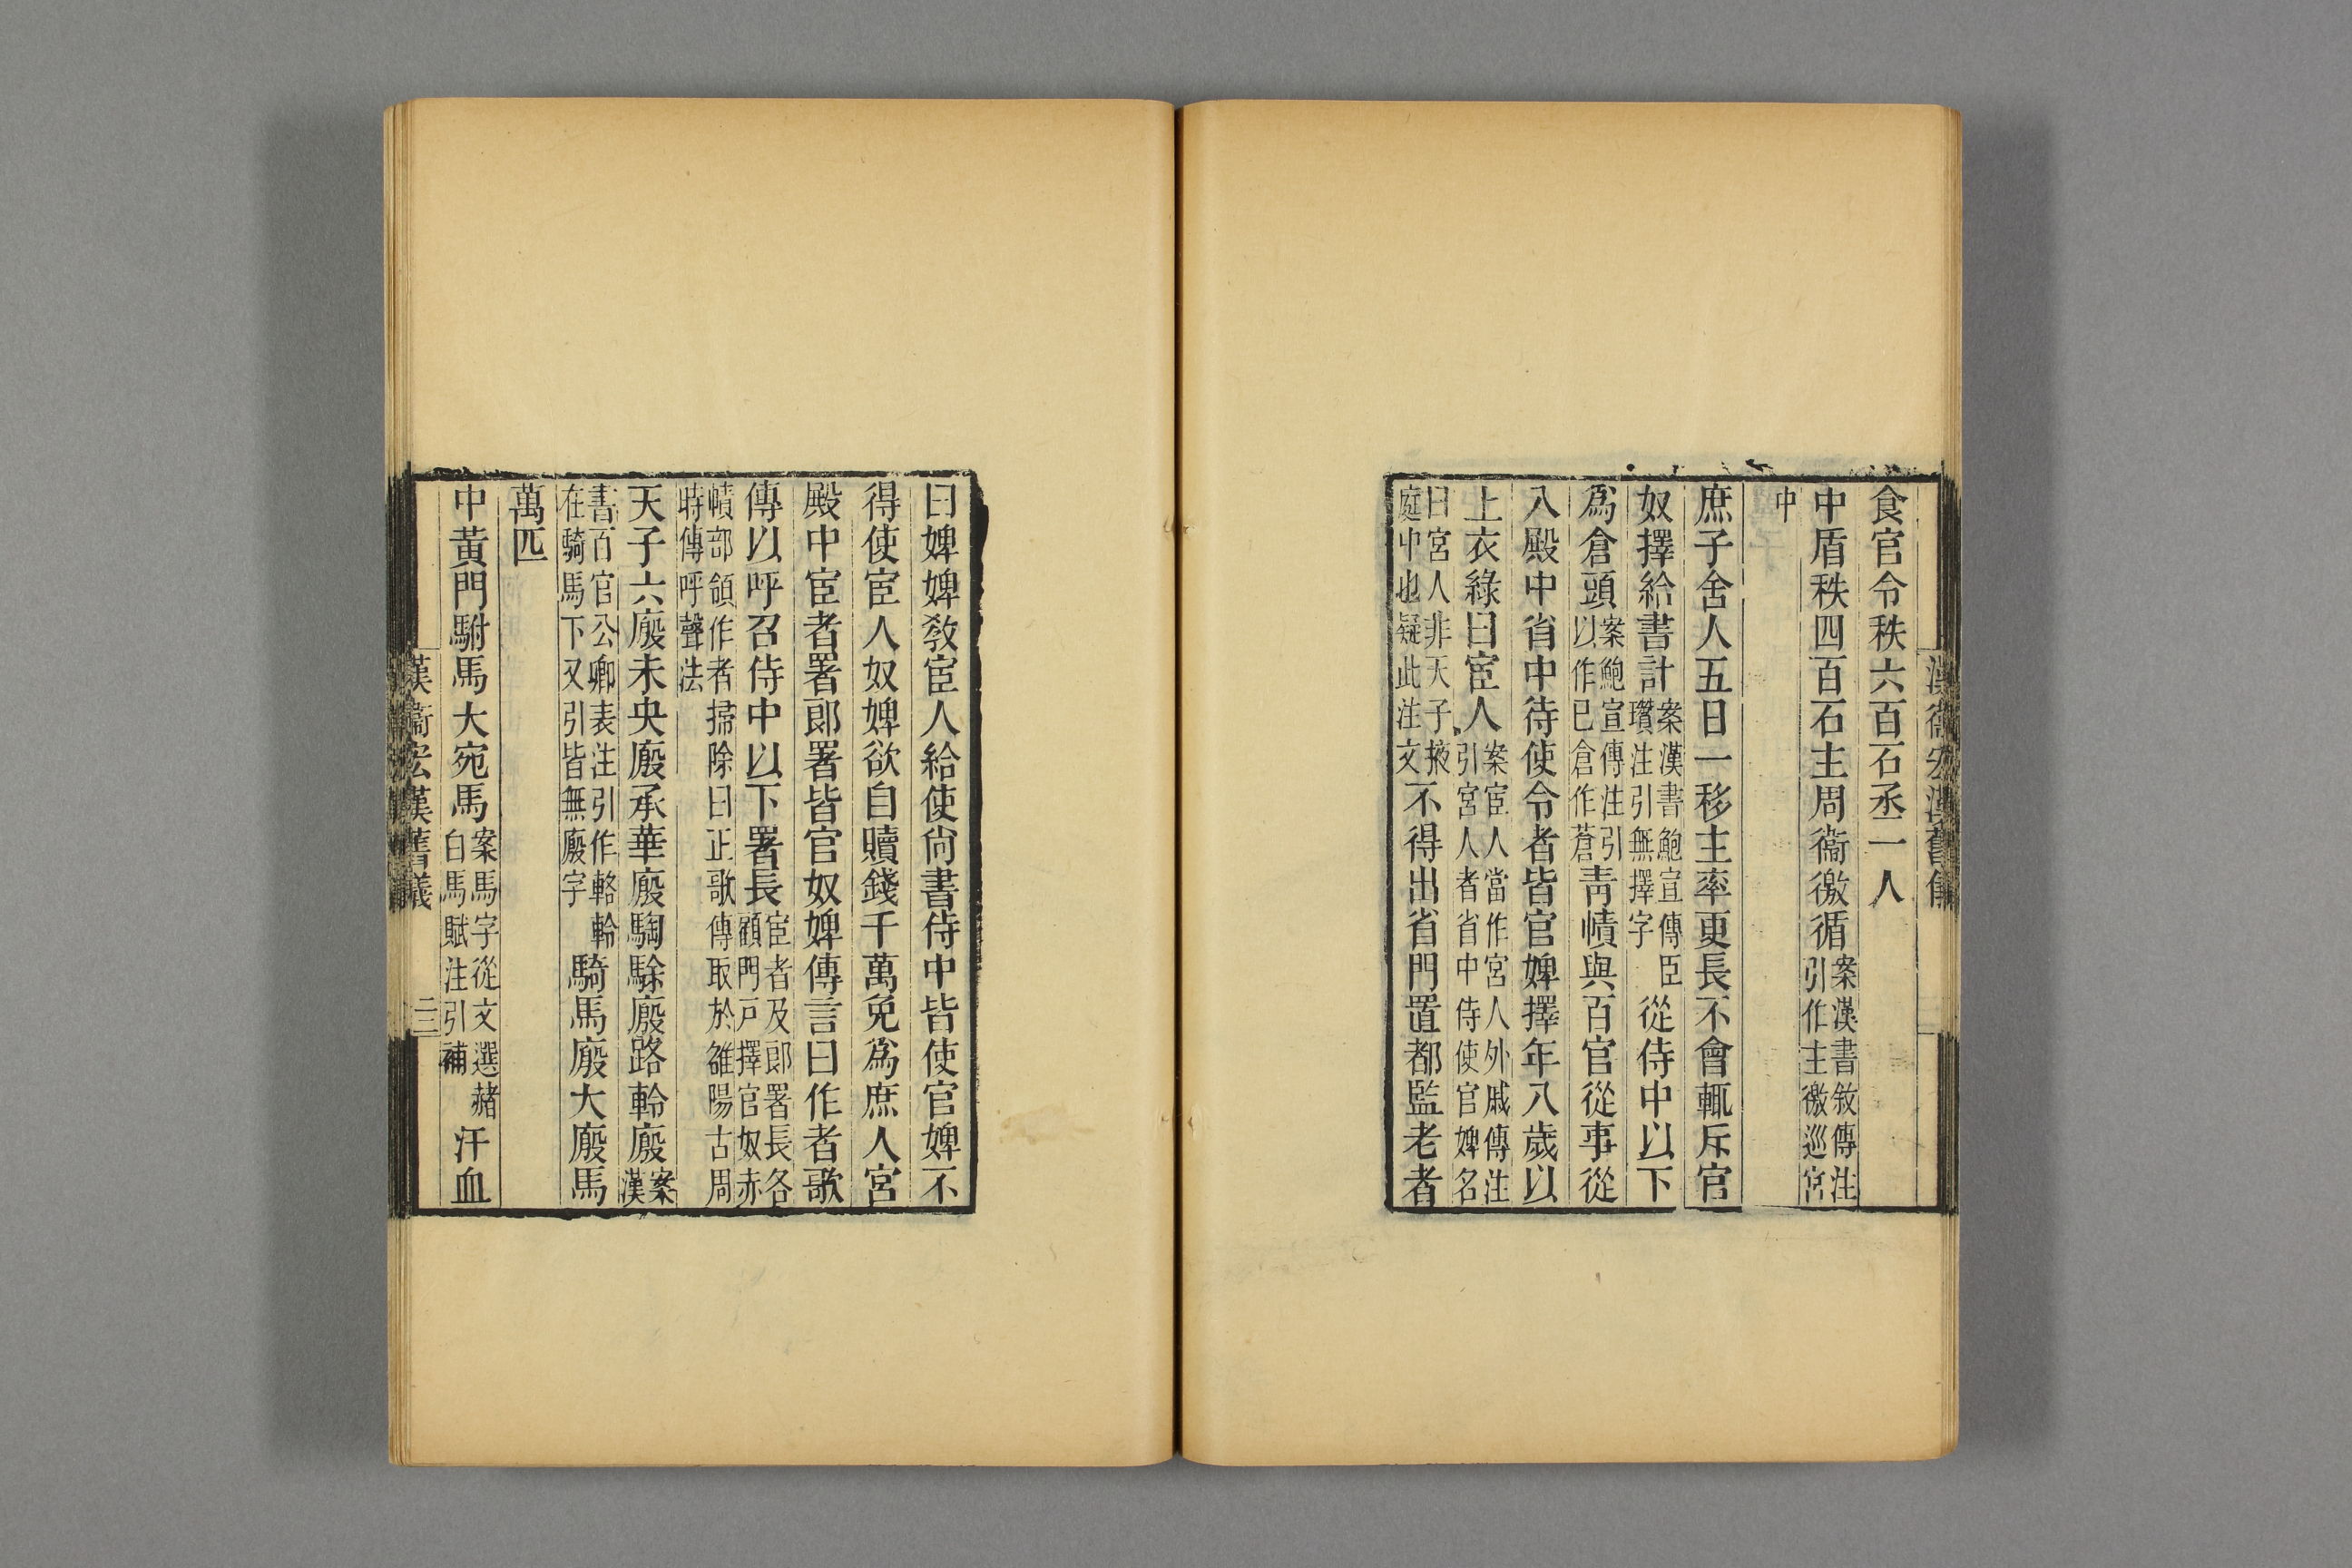 漢衞宏漢舊儀
食官令秩六百石丞一人
中盾秩四百石主周衞徼循案漢書敘傳注引作主徼巡宮
中
庶子舍人五日一移主率更長不會輒斥官
奴擇給書計案漢書鮑宣傳臣瓚注引無擇字從侍中以下
爲倉頭案鮑宣傳注引以作已倉作蒼青幘與百官從事從
入殿中省中待使令者皆官婢擇年八歲以
上衣綠曰宦人案宦人當作宮人外戚傳注引宮人者省中侍使官婢名
曰宮人非天子掖庭中也疑此注文不得出省門置都監老者
曰婢婢教宦人給使尙書侍中皆使官婢不
得使宦人奴婢欲自贖錢千萬免爲庶人宮
殿中宦者署郎署皆官奴婢傳言曰作者歌
傳以呼召侍中以下署長宦者及郎署長各顧門戸擇官奴赤
幘部領作者掃除曰正歌傳取於雒陽古周時傳呼聲法
天子六廄未央廄承華廄騊駼廄路軨廄案漢
書百官公卿表注引作輅軨在騎馬下又引皆無廄字騎馬廄大廄馬
萬匹
中黃門駙馬大宛馬案馬字從文選赭白馬賦注引補汗血
漢衞宏漢舊儀
三